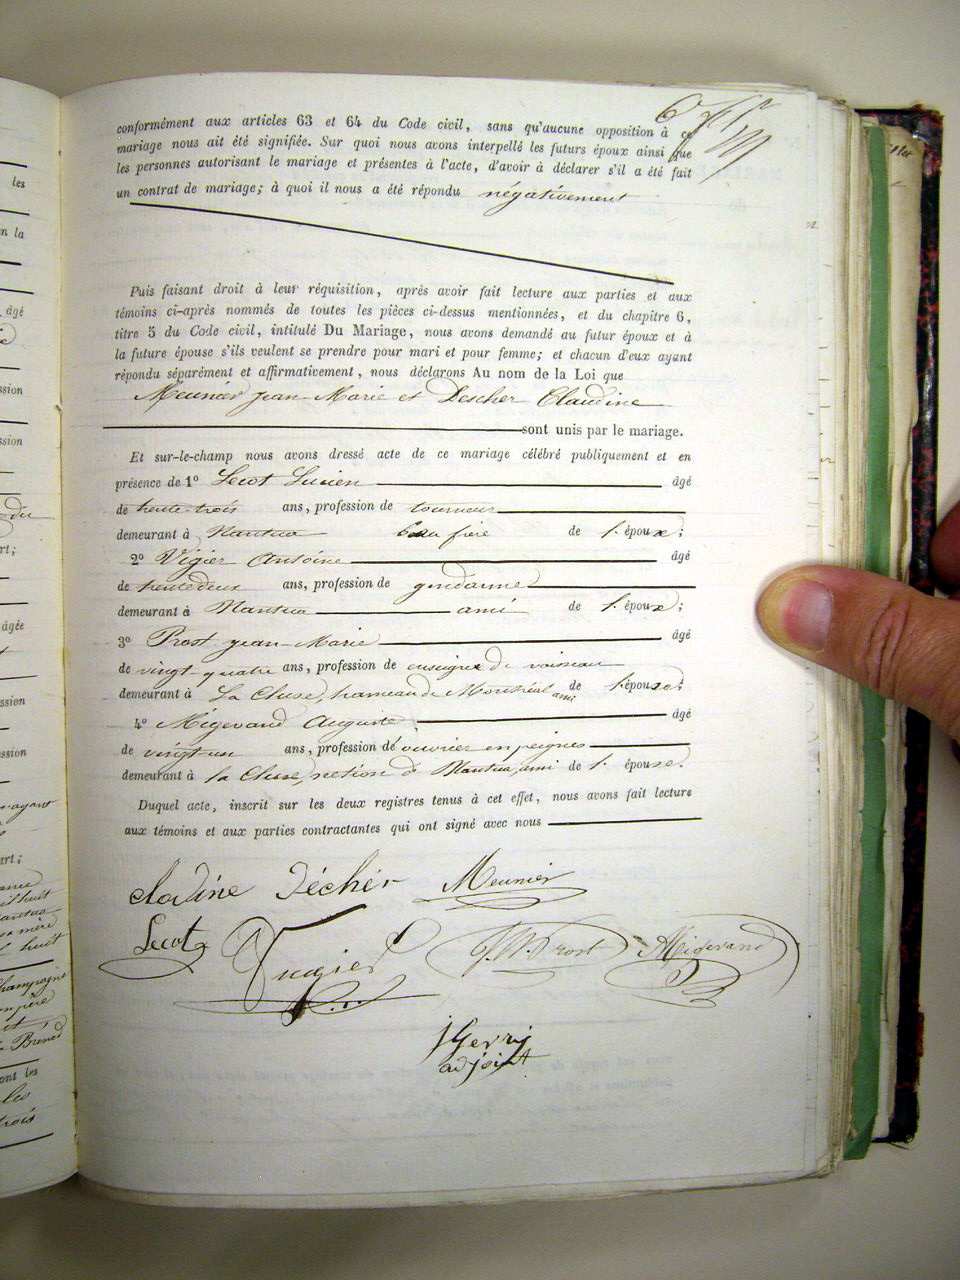 conformément aux articles 63 et 64 du Code civil, sans qu'aucune opposition à ce
mariage nous ait été signifiée. Sur quoi nous avons interpellé les futurs époux ainsi que
les personnes autorisant le mariage et présentes à l'acte, d'avoir à déclarer s'il a été fait
un contrat de mariage; à quoi il nous a été répondu négativement
Puis faisant droit à leur réquisition, après avoir fait lecture aux parties et aux
témoins ci-après nommés de toutes les pièces ci-dessus mentionnées, et du chapitre 6,
titre 5 du Code civil, intitulé Du Mariage, nous avons demandé au futur époux et à
la future épouse s'ils veulent se prendre pour mari et pour femme; et chacun d'eux ayant
répondu séparément et affirmativement, nous déclarons Au nom de la Loi que
Meunier Jean-Marie et Descher Claudine
sont unis par le mariage.
Et sur-le-champ nous avons dressé acte de ce mariage célébré publiquement et en
présence de 1º Lecot Lucien âgé
de trente-trois ans, profession de tourneur
demeurant à Nantua beau frère de l'époux;
2º Vigier Antoine âgé
de trente deux ans, profession de gendarme
demeurant à Nantua ami de l'époux;
3º Prost Jean-Marie âgé
de vingt-quatre ans, profession de enseigne de vaisseau
demeurant à La Cluse, hameau de Montréal ami de l'épouse;
4º Migevand Auguste âgé
de vingt-un ans, profession d'ouvrier en peignes
demeurant à la Cluse, section de Nantua, ami de l'épouse.
Duquel acte, inscrit sur les deux registres tenus à cet effet, nous avons fait lecture
aux témoins et aux parties contractantes qui ont signé avec nous
clodine Décher Meunier
Lecot Vugier J. M. Prost Migevand
adjoint